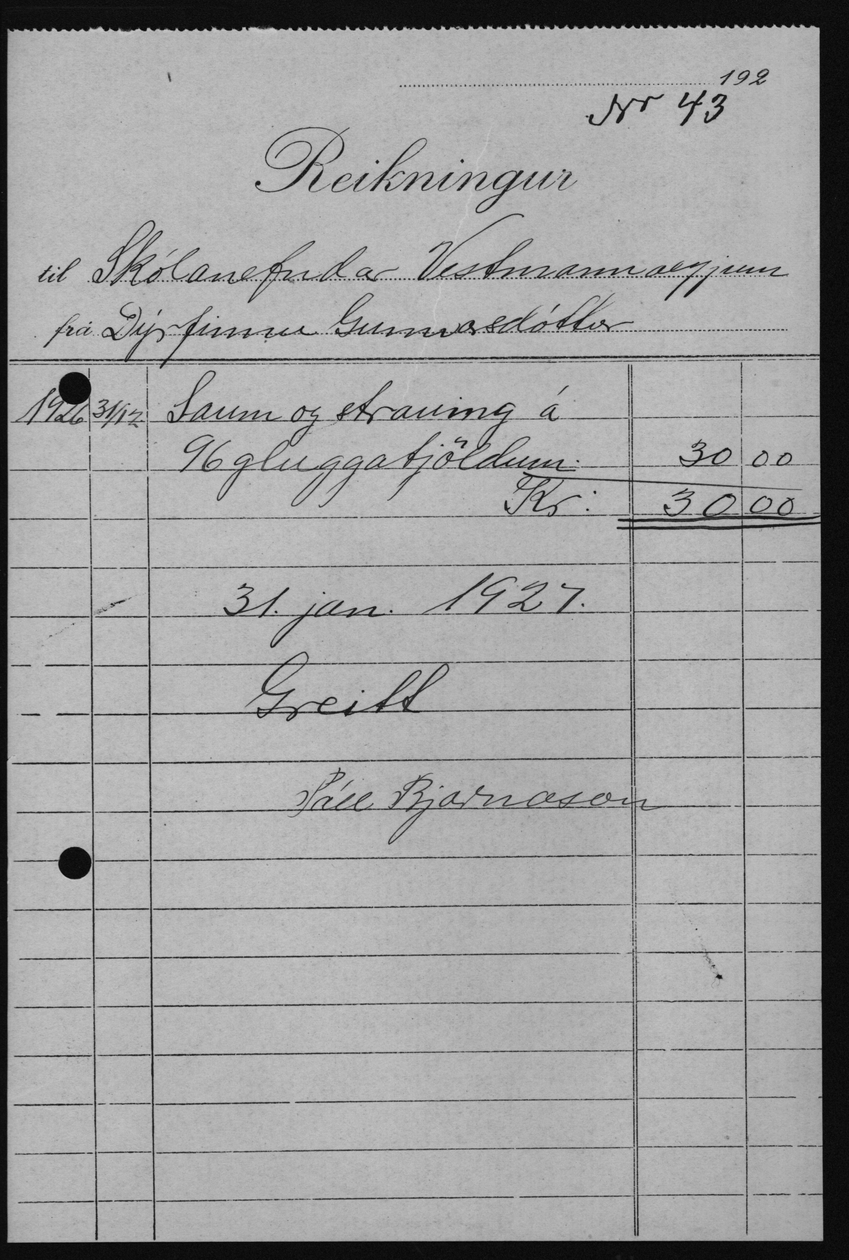 192
Nr 43
Reikningur
til Skólanefndar Vestmannaeyjum
frá Dýrfinnu Gunnarsdóttur
1926 31/12 Saum og strauing á
96 gluggatjöldum. 30 00
Kr: 30 00
31. jan. 1927.
Greitt
Páll Bjarnason